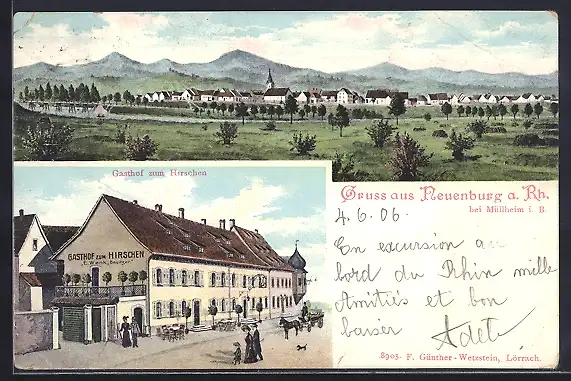 Gruss aus Neuenburg a. Rh.
bei Müllheim i. B.
Gasthof zum Hirschen
GASTHOF ZUM HIRSCHEN
4.6.06.
En excursion au
bord du Rhin mille
Amitiés et bon
baiser Adel
8903. F. Günther-Wetzstein, Lörrach.